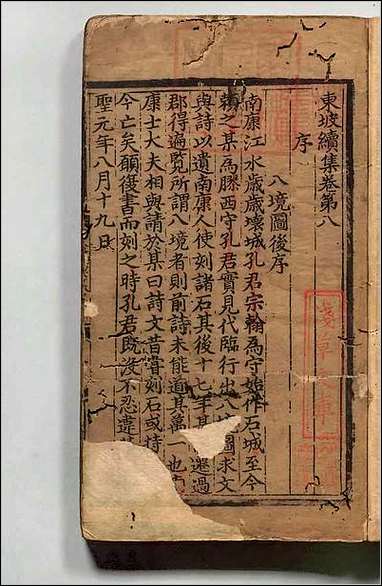 東坡續集卷第八
序
八境圖後序
南康江水歲歲壞城孔君宗翰為守始作石城至今
賴之某為膠西守孔君實見代臨行出八境圖求文
與詩以遺南康人使刻諸石其後十七年某遷過
郡得遍覽所謂八境者則前詩未能道其萬一也南
康士大夫相與請於某曰詩文昔嘗刻石或持
今亡矣願復書而刻之時孔君既沒不忍違
聖元年八月十九日